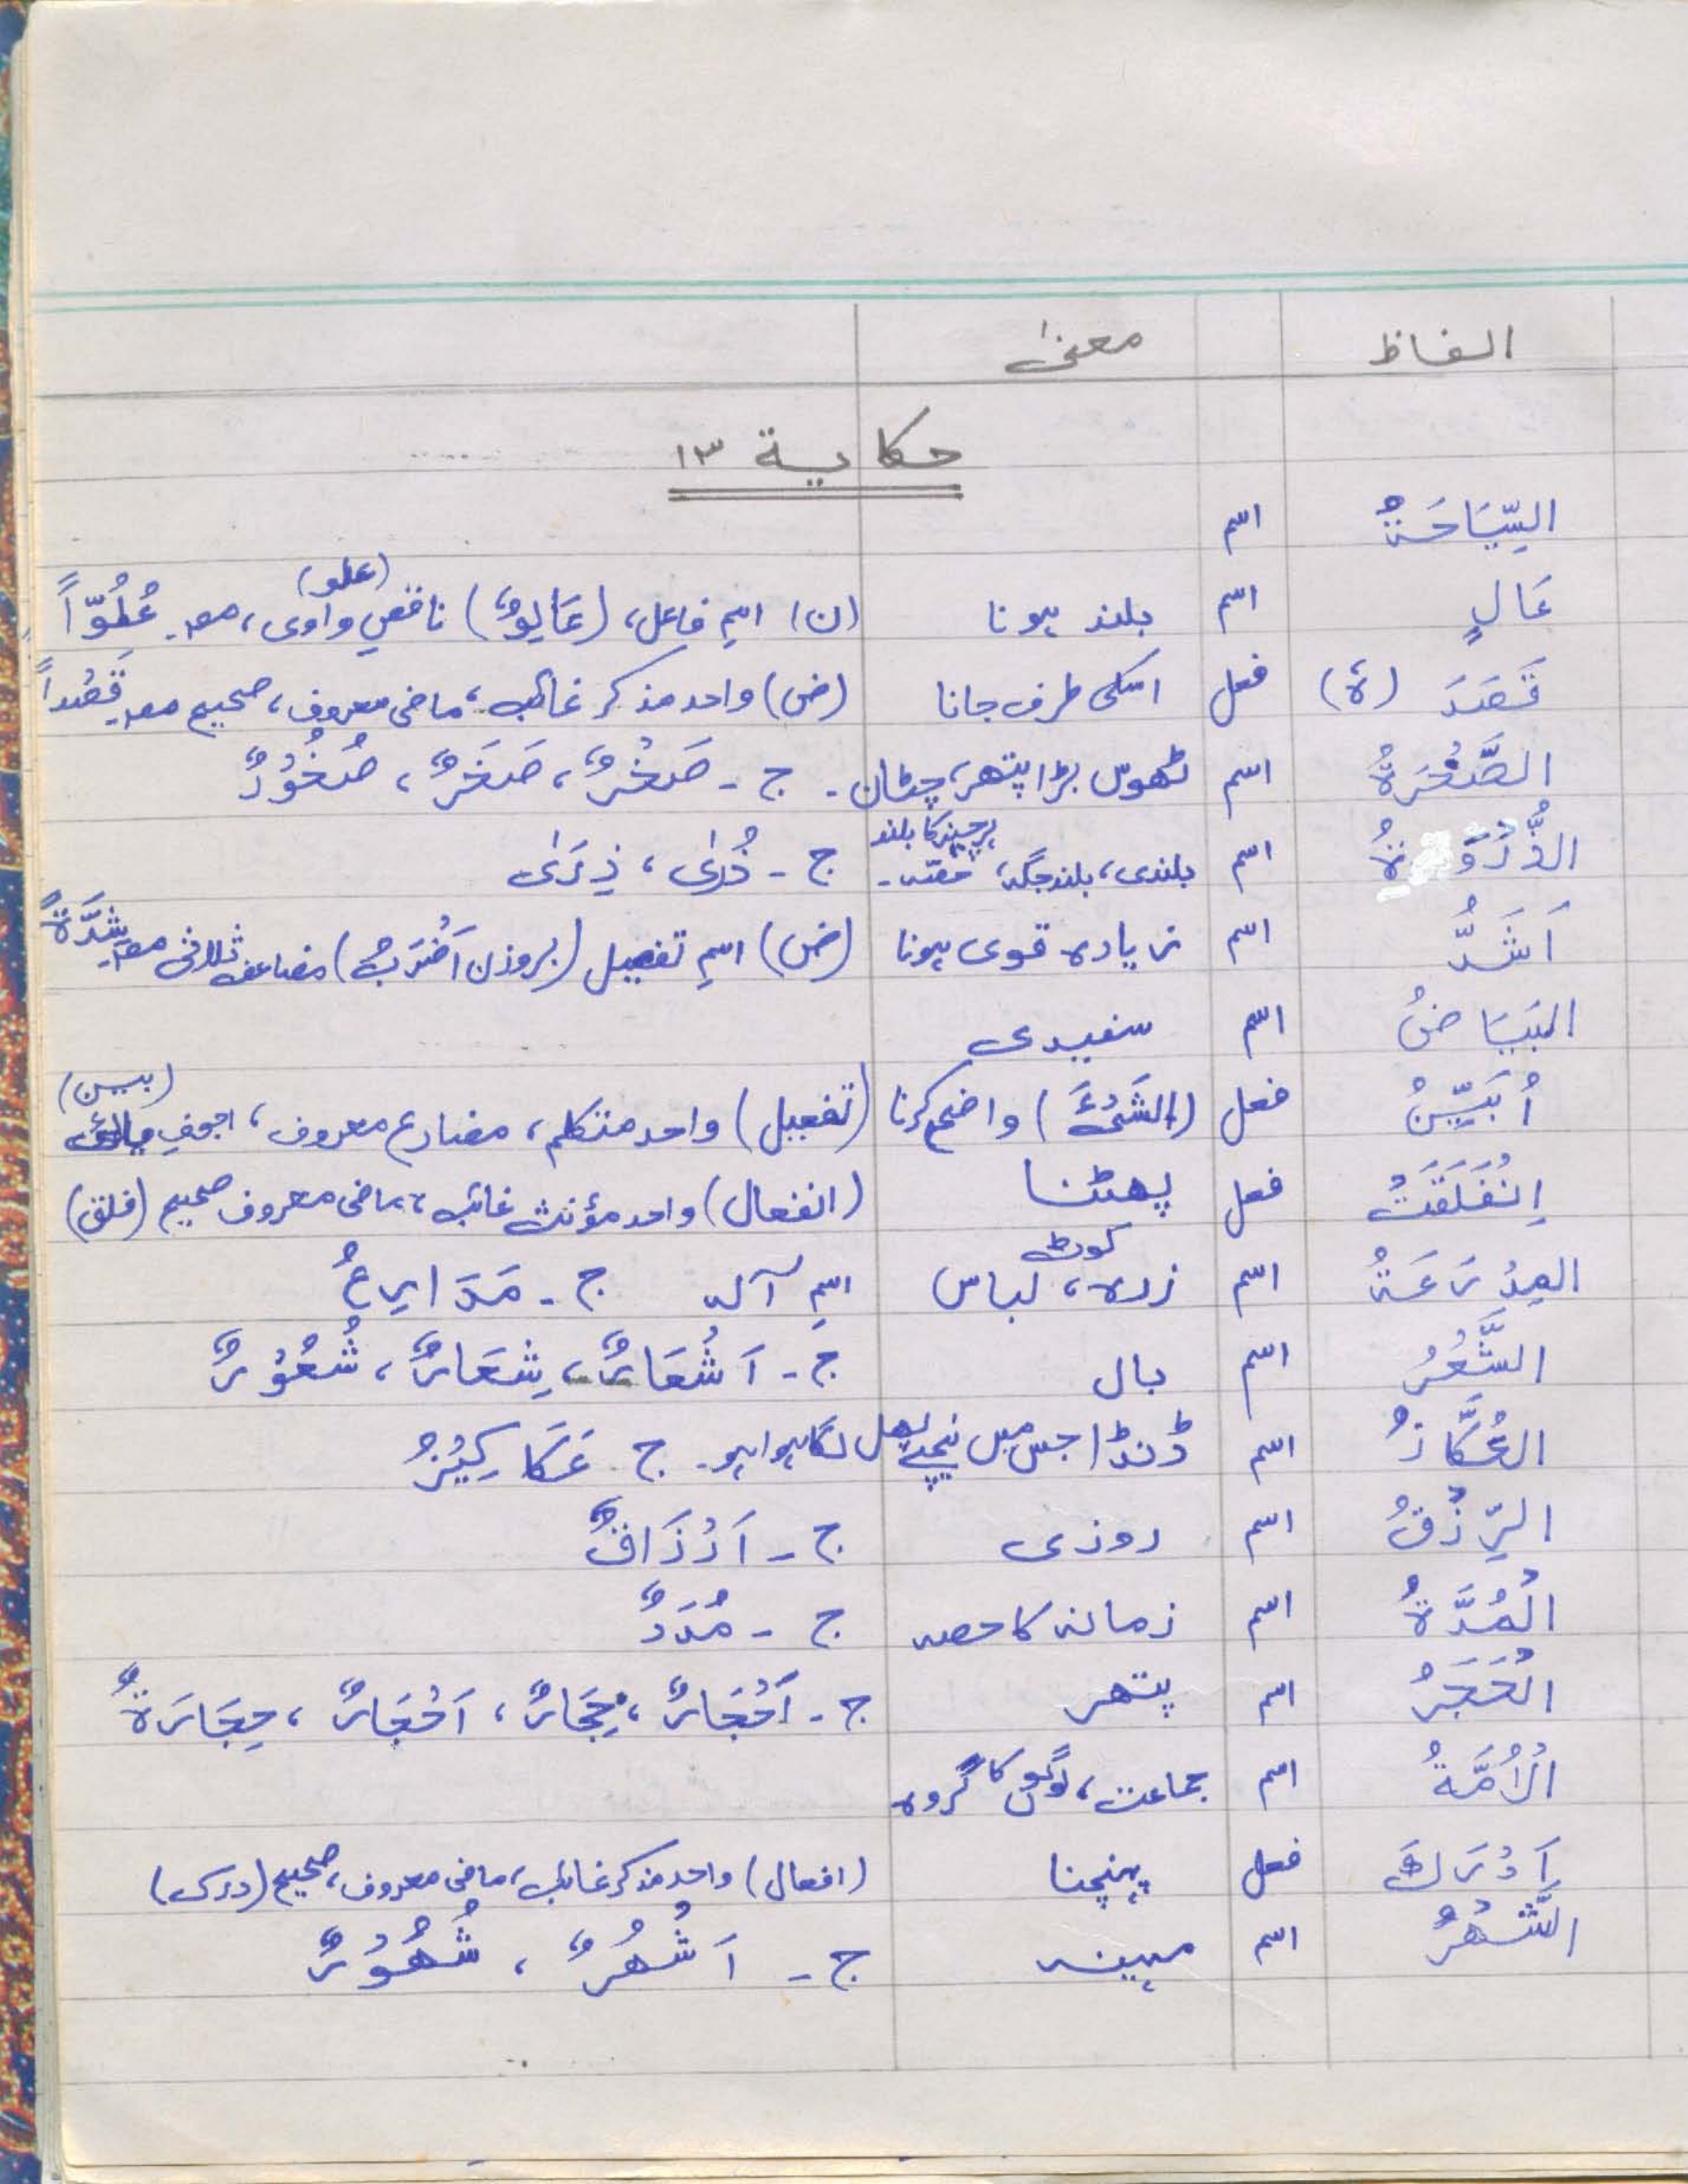 الفاظ معنیٰ
حکایة ۱۳
السِّیَاحَةُ اسم
عَالٍ اسم بلند ہونا (ن) اسمِ فاعل، (عَالِوٌ) ناقصِ واوی، (علو) مصـ عُلُوّاً
قَصَدَ (ہٗ) فعل اسکی طرف جانا (ض) واحد مذکر غائب، ماضی معروف، صحیح مصـ قَصْداً
الصَّخْرَةُ اسم ٹھوس بڑا پتھر، چٹان۔ ج ـ صَخْرٌ، صَخَرٌ، صُخُوْرٌ
الذُّرْوَةُ اسم بلندی، بلند جگہ، ہر چیز کا بلند حصّہ۔ ج ـ ذُرٰی، ذِرٰی
اَشَدُّ اسم زیادہ قوی ہونا (ض) اسمِ تفضیل (بروزن اَضْرَبُ) مضاعف ثلاثی مصـ شِدَّةً
البَیَاضُ اسم سفیدی
اُبَیِّنُ فعل (الشَیْءَ) واضح کرنا (تفعیل) واحد متکلم، مضارع معروف، اجوفِ یائی (بین)
اِنْفَلَقَتْ فعل پھٹنا (انفعال) واحد مؤنث غائب، ماضی معروف صحیح (فلق)
المِدْرَعَةُ اسم زرہ، کوٹ لباس اسمِ آلہ ج ـ مَدَارِعُ
الشَّعْرُ اسم بال ج ـ اَشْعَارٌ، شِعَارٌ، شُعُوْرٌ
العُکَّازُ اسم ڈنڈا جس میں نیچے پھل لگا ہوا ہو۔ ج ـ عَکَاکِیْزُ
الرِّزْقُ اسم روزی ج ـ اَرْزَاقٌ
الْمُدَّةُ اسم زمانہ کا حصہ ج ـ مُدَدٌ
الْحَجَرُ اسم پتھر ج ـ اَحْجَارٌ، حِجَارٌ، اَحْجَارٌ، حِجَارَةٌ
الْاُمَّةُ اسم جماعت، لوگوں کا گروہ
اَدْرَكَ فعل پہنچنا (افعال) واحد مذکر غائب، ماضی معروف، صحیح (درک)
الشَّهْرُ اسم مہینہ ج ـ اَشْهُرٌ، شُهُوْرٌ